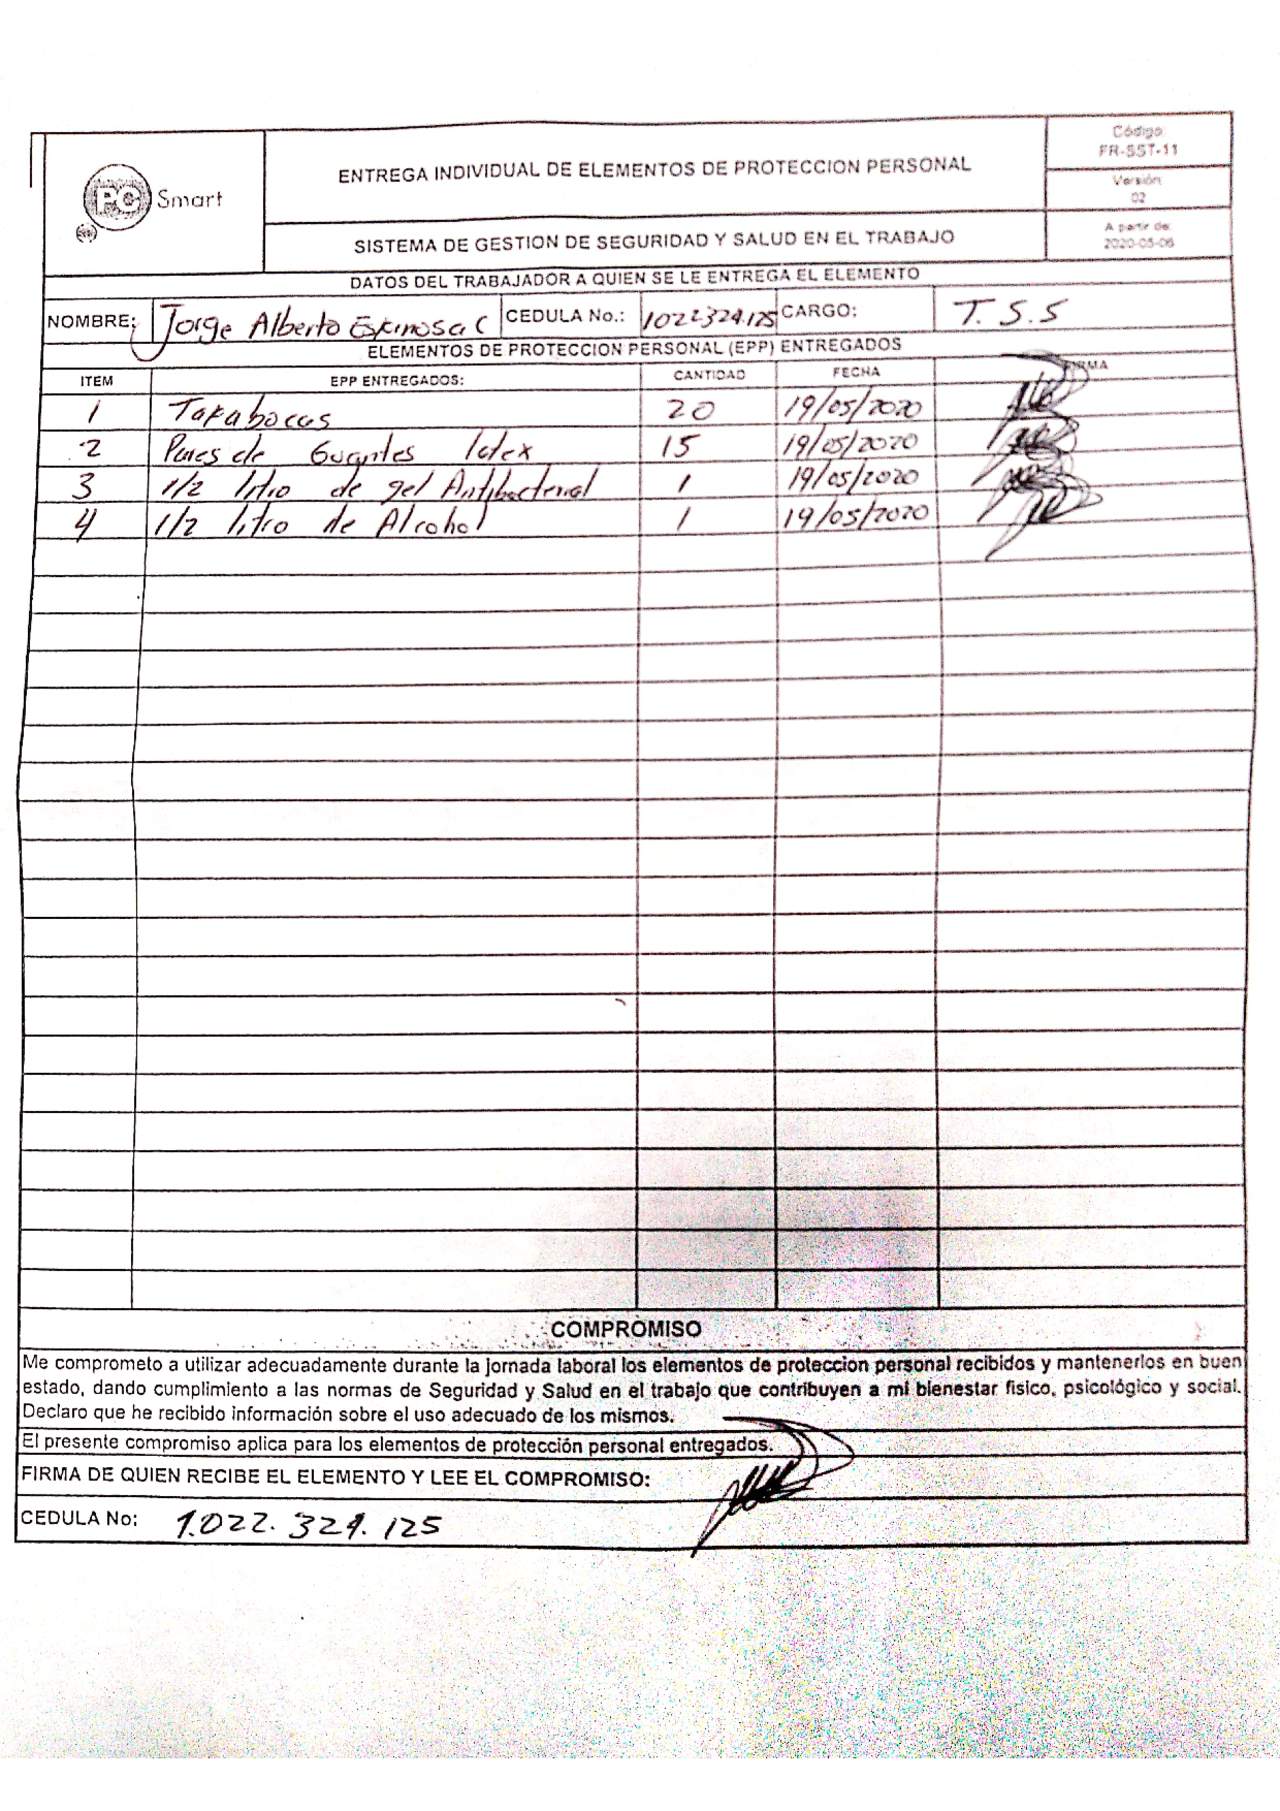 PC Smart
ENTREGA INDIVIDUAL DE ELEMENTOS DE PROTECCION PERSONAL
SISTEMA DE GESTION DE SEGURIDAD Y SALUD EN EL TRABAJO
Código:
FR-SST-11
Versión:
02
A partir de:
2020-05-06
DATOS DEL TRABAJADOR A QUIEN SE LE ENTREGA EL ELEMENTO
NOMBRE: Jorge Alberto Espinosa C CEDULA No.: 1022324.125 CARGO: T.S.S
ELEMENTOS DE PROTECCION PERSONAL (EPP) ENTREGADOS
ITEM EPP ENTREGADOS: CANTIDAD FECHA FIRMA
1 Takabocas 20 19/05/2020
2 Pares de Guantes latex 15 19/05/2020
3 1/2 litro de gel Antibacterial 1 19/05/2020
4 1/2 litro de Alcohol 1 19/05/2020
COMPROMISO
Me comprometo a utilizar adecuadamente durante la jornada laboral los elementos de protección personal recibidos y mantenerlos en buen
estado, dando cumplimiento a las normas de Seguridad y Salud en el trabajo que contribuyen a mi bienestar fisico, psicológico y social.
Declaro que he recibido información sobre el uso adecuado de los mismos.
El presente compromiso aplica para los elementos de protección personal entregados.
FIRMA DE QUIEN RECIBE EL ELEMENTO Y LEE EL COMPROMISO:
CEDULA No: 1.022.324.125